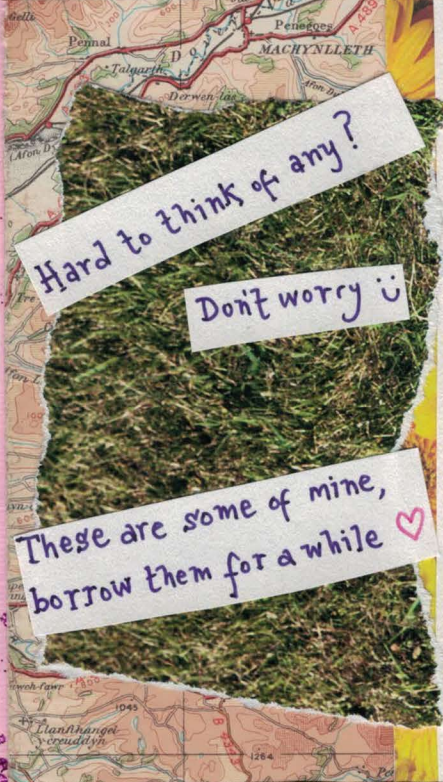 Gelli
Pennal
Penegoes
A 489
MACHYNLLETH
Talgarth
D
Derwen-las
(Afon Dy
Hard to think of any?
Don't worry
These are some of mine,
borrow them for a while
100
1045
Llanfihangel
y-creuddyn
B 4343
1264